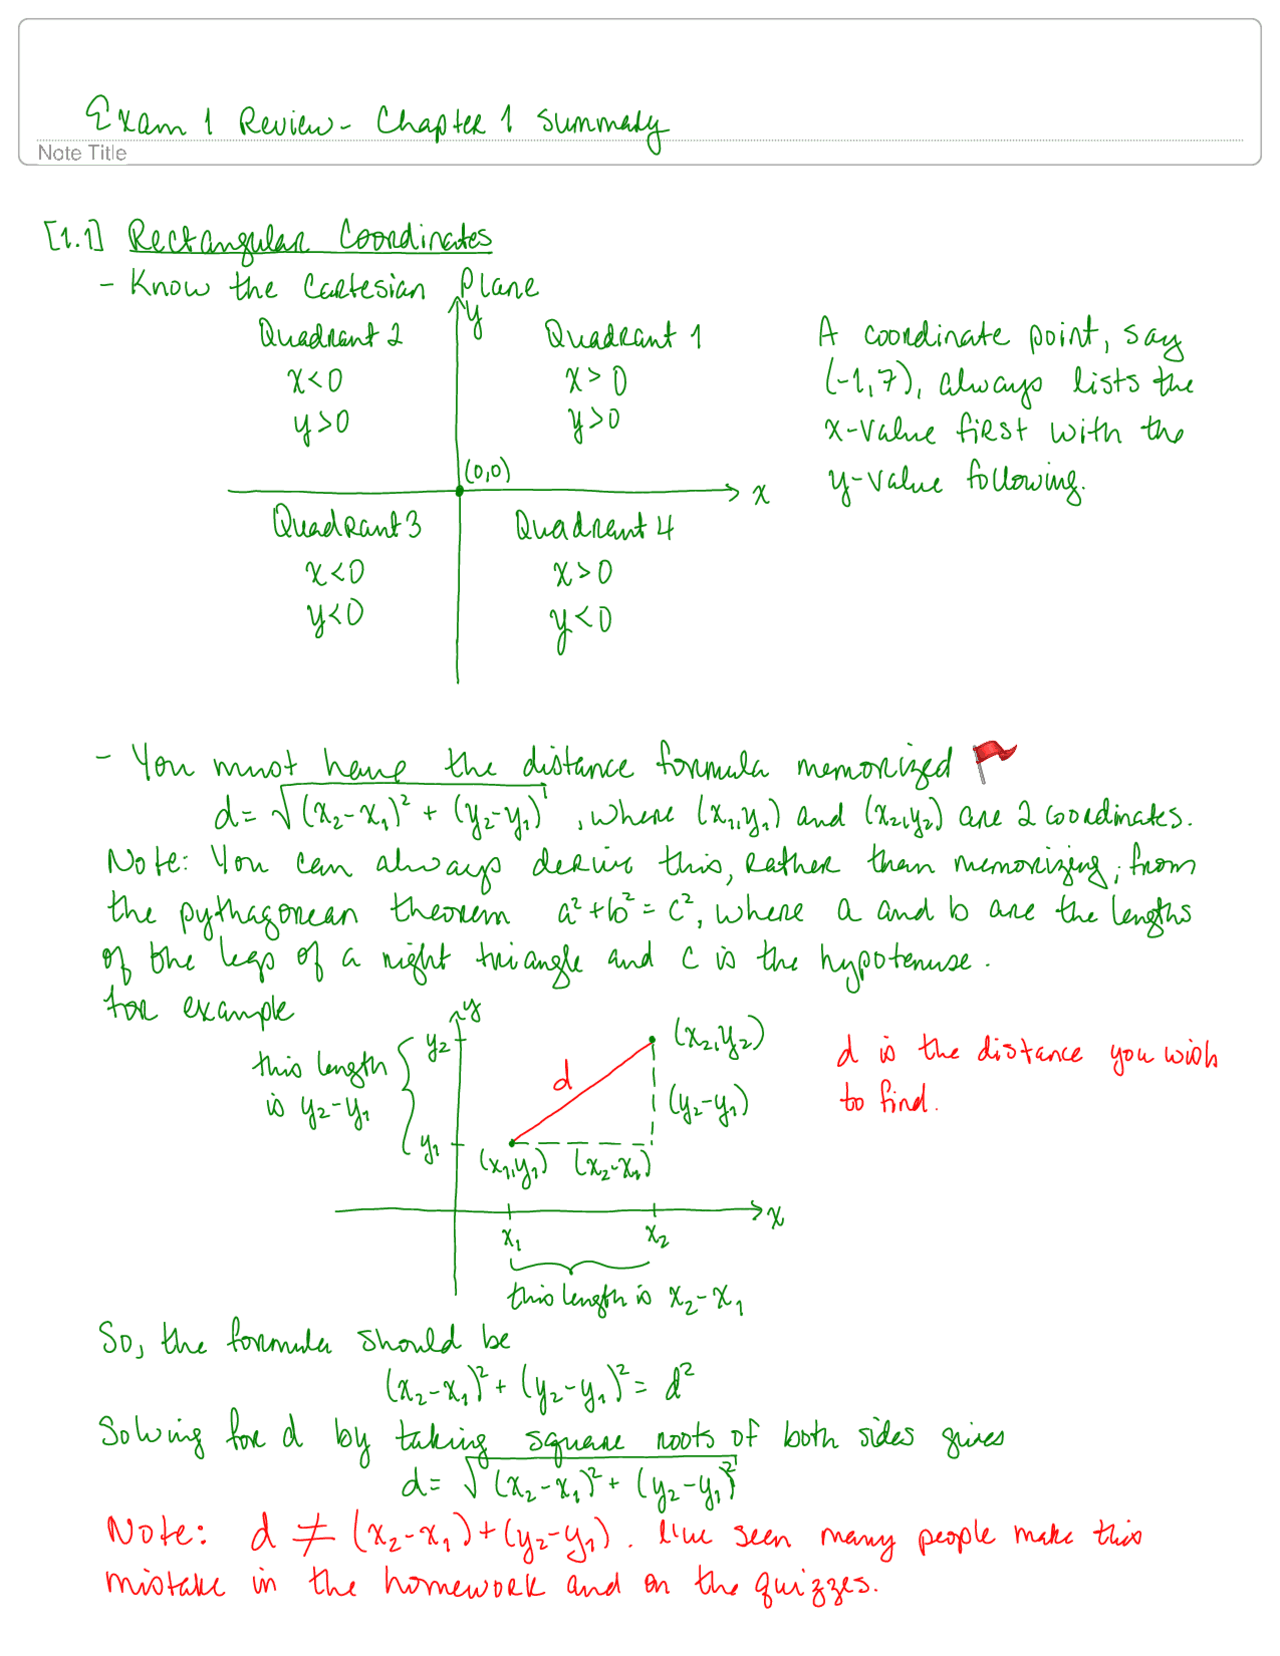 Exam 1 Review - Chapter 1 Summary
Note Title
[1.1] Rectangular Coordinates
- Know the Cartesian Plane
y
Quadrant 2
x<0
y>0
Quadrant 1
x>0
y>0
(0,0)
x
Quadrant 3
x<0
y<0
Quadrant 4
x>0
y<0
A coordinate point, say
(-1,7), always lists the
x-value first with the
y-value following.
- You must have the distance formula memorized
d= √(x₂-x₁)² + (y₂-y₁) , where (x₁,y₁) and (x₂,y₂) are 2 coordinates.
Note: You can always derive this, rather than memorizing, from
the pythagorean theorem a²+b²=c², where a and b are the lengths
of the legs of a right triangle and c is the hypotenuse.
For example
y
this length
is y₂-y₁
y₂
y₁
d
(x₂,y₂)
(y₂-y₁)
(x₁,y₁) (x₂-x₁)
x
x₁ x₂
this length is x₂-x₁
d is the distance you wish
to find.
So, the formula should be
(x₂-x₁)² + (y₂-y₁)² = d²
Solving for d by taking square roots of both sides gives
d= √(x₂-x₁)² + (y₂-y₁)²
Note: d ≠ (x₂-x₁)+(y₂-y₁). I've seen many people make this
mistake in the homework and on the quizzes.